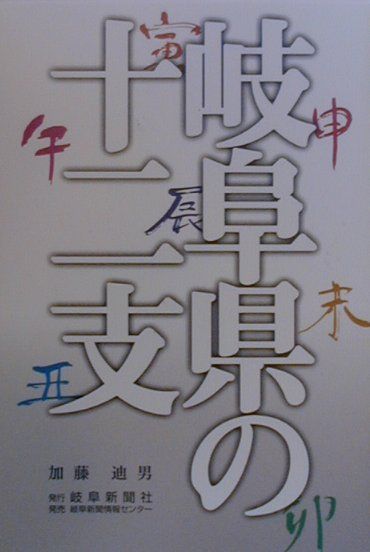 岐阜県の
十二支
寅
申
午
辰
未
丑
卯
加藤 迪男
発行 岐阜新聞社
発売 岐阜新聞情報センター